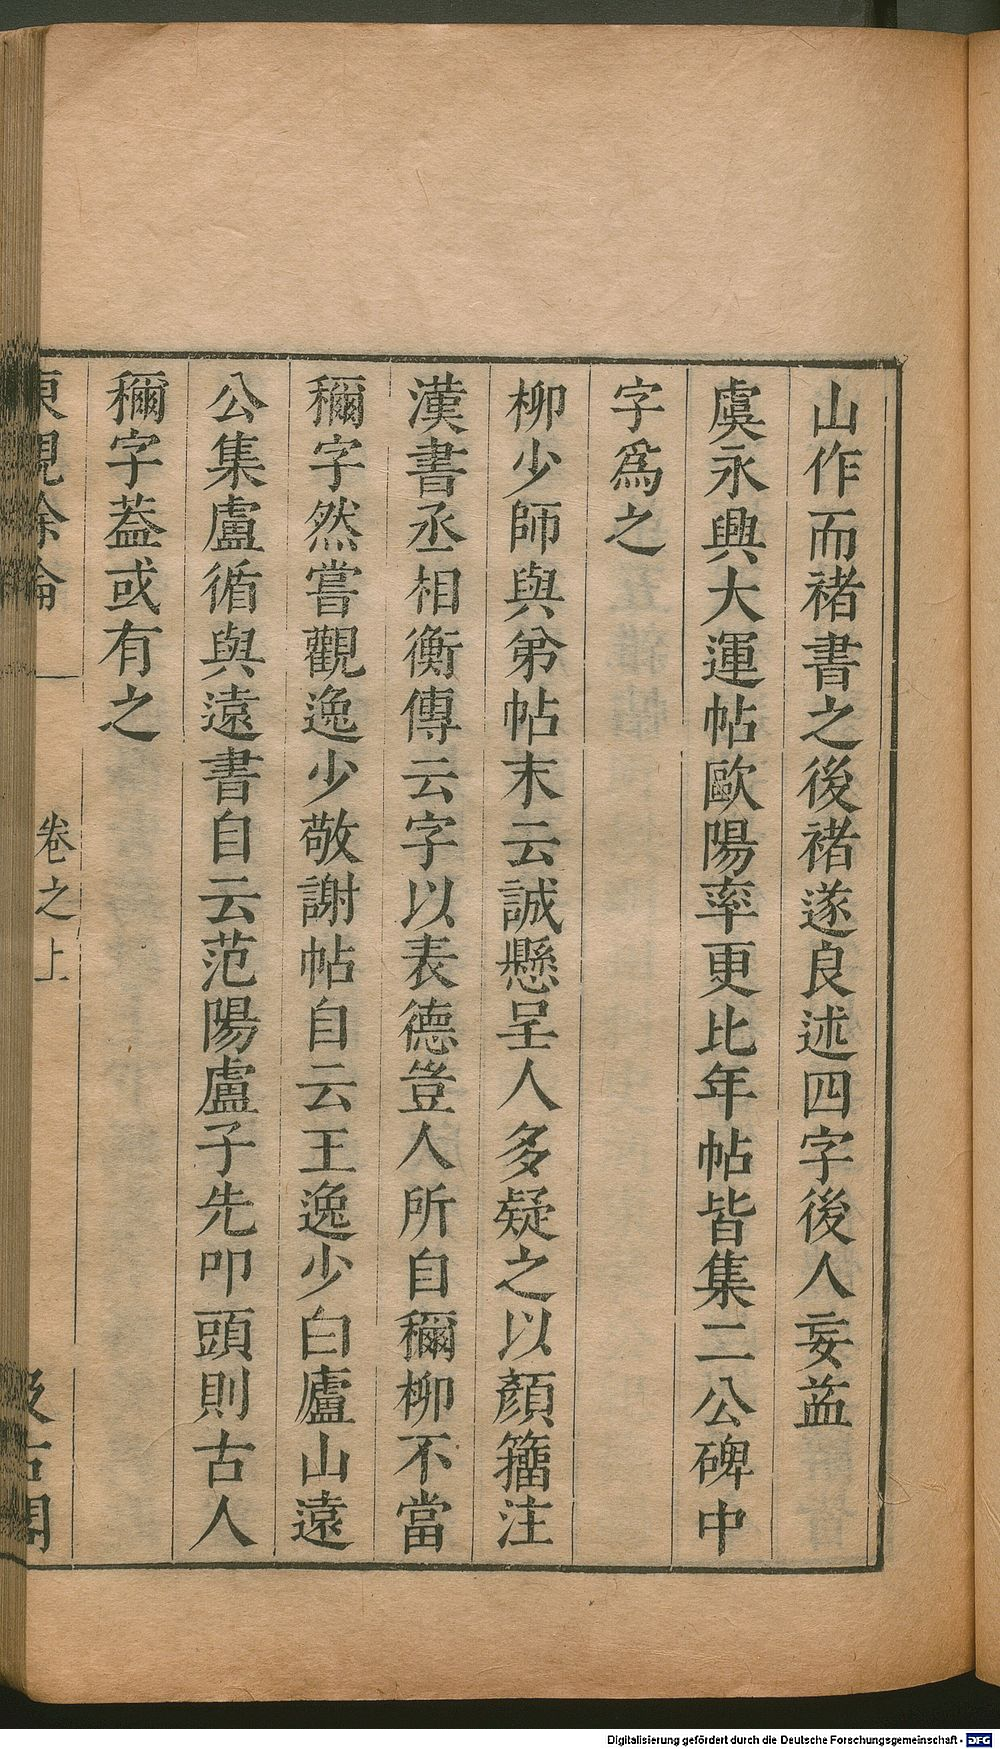 山作而褚書之後褚遂良述四字後人妄葢
虞永興大運帖歐陽率更比年帖皆集二公碑中
字爲之
柳少師與弟帖末云誠懸呈人多疑之以顏籀注
漢書丞相衡傳云字以表德豈人所自稱柳不當
稱字然嘗觀逸少敬謝帖自云王逸少白廬山遠
公集盧循與遠書自云范陽盧子先叩頭則古人
稱字葢或有之
東觀餘論
卷之上
汲古閣
Digitalisierung gefördert durch die Deutsche Forschungsgemeinschaft - DFG